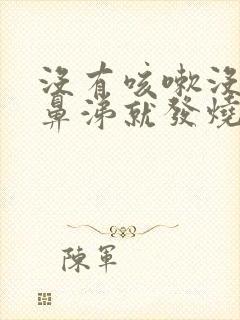 沒有咳嗽沒
鼻涕就發燒
陳軍